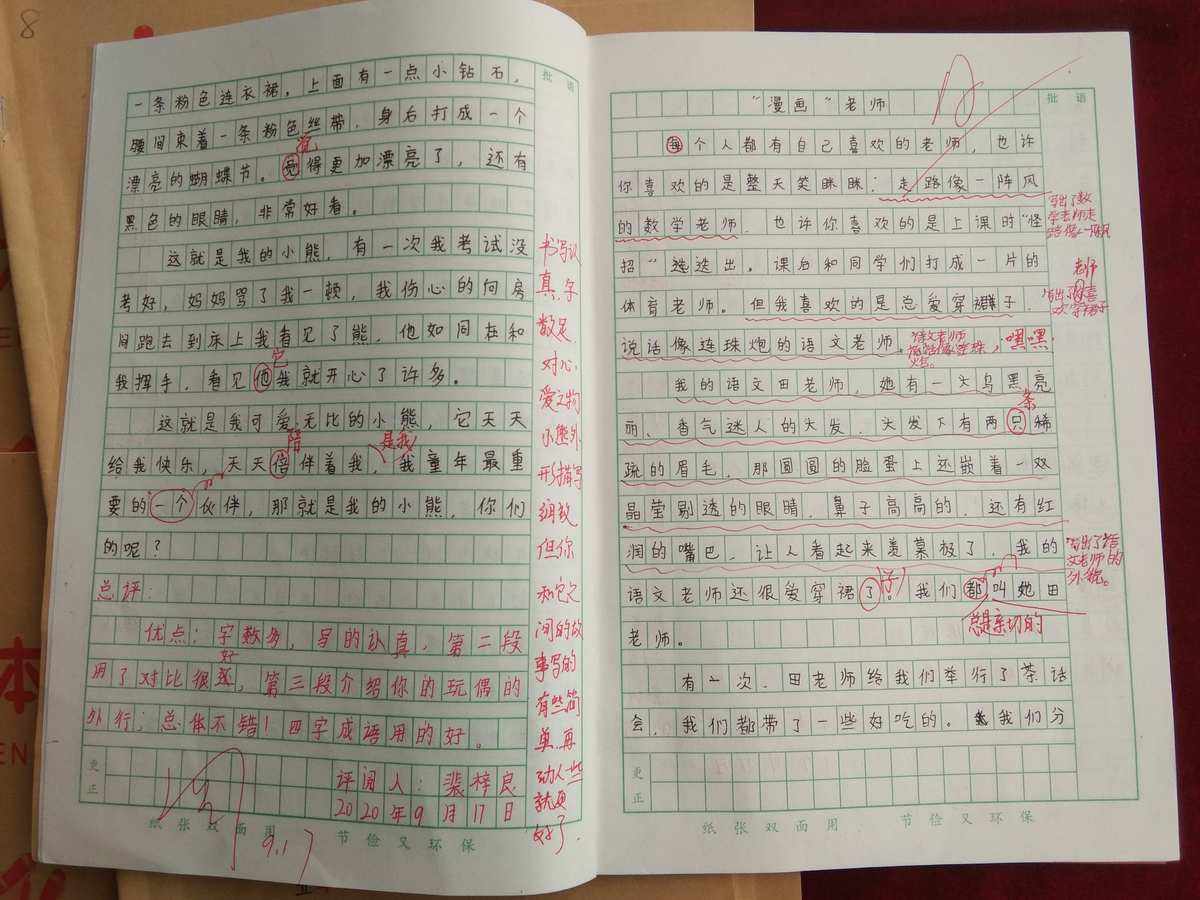 8
批语
一条粉色连衣裙，上面有一点小钻石，
腰间束着一条粉色丝带，身后打成一个
漂亮的蝴蝶节。觉得更加漂亮了，还有
黑色的眼睛，非常好看。
这就是我的小熊，有一次我考试没
考好，妈妈骂了我一顿，我伤心的向房
间跑去到床上我看见了熊，他如同在和
它
我挥手，看见他我就开心了许多。
这就是我可爱无比的小熊，它天天
陪
是我
给我快乐，天天倍伴着我，我童年最重
要的一个伙伴，那就是我的小熊，你们
的呢？
总评：
优点：字数多，写的认真，第二段
好
用了对比很，第三段介绍你的玩偶的
外行；总体不错！四字成语用的好。
评阅人：裴梓良
2020年9月17日
书写认
真，字
数足，
对心
爱之物
小熊外
形描写
细致
但你
和它之
间的故
事写的
有些简
单，再
动人一些
就更
好了.
更正
9.17
纸张双面用 节俭又环保
批语
“漫画”老师
每个人都有自己喜欢的老师，也许
你喜欢的是整天笑眯眯；走路像一阵风
的数学老师，也许你喜欢的是上课时“怪
招”迭迭出，课后和同学们打成一片的
体育老师。但我喜欢的是总爱穿裙子，
说话像连珠炮的语文老师。
写出了数
学老师走
路像一阵风
老师
写出了喜
欢穿裙子
语文老师
说话像连珠
炮。
嘿嘿
我的语文田老师，她有一头乌黑亮
条
丽、香气迷人的头发，头发下有两只稀
疏的眉毛，那圆圆的脸蛋上还嵌着一双
晶莹剔透的眼睛，鼻子高高的，还有红
润的嘴巴，让人看起来羡慕极了，我的
写出了语
文老师的
外貌。
子
语文老师还很爱穿裙了。我们都叫她田
总是亲切的
老师。
有一次，田老师给我们举行了茶话
会，我们都带了一些好吃的。我们分
更正
纸张双面用 节俭又环保